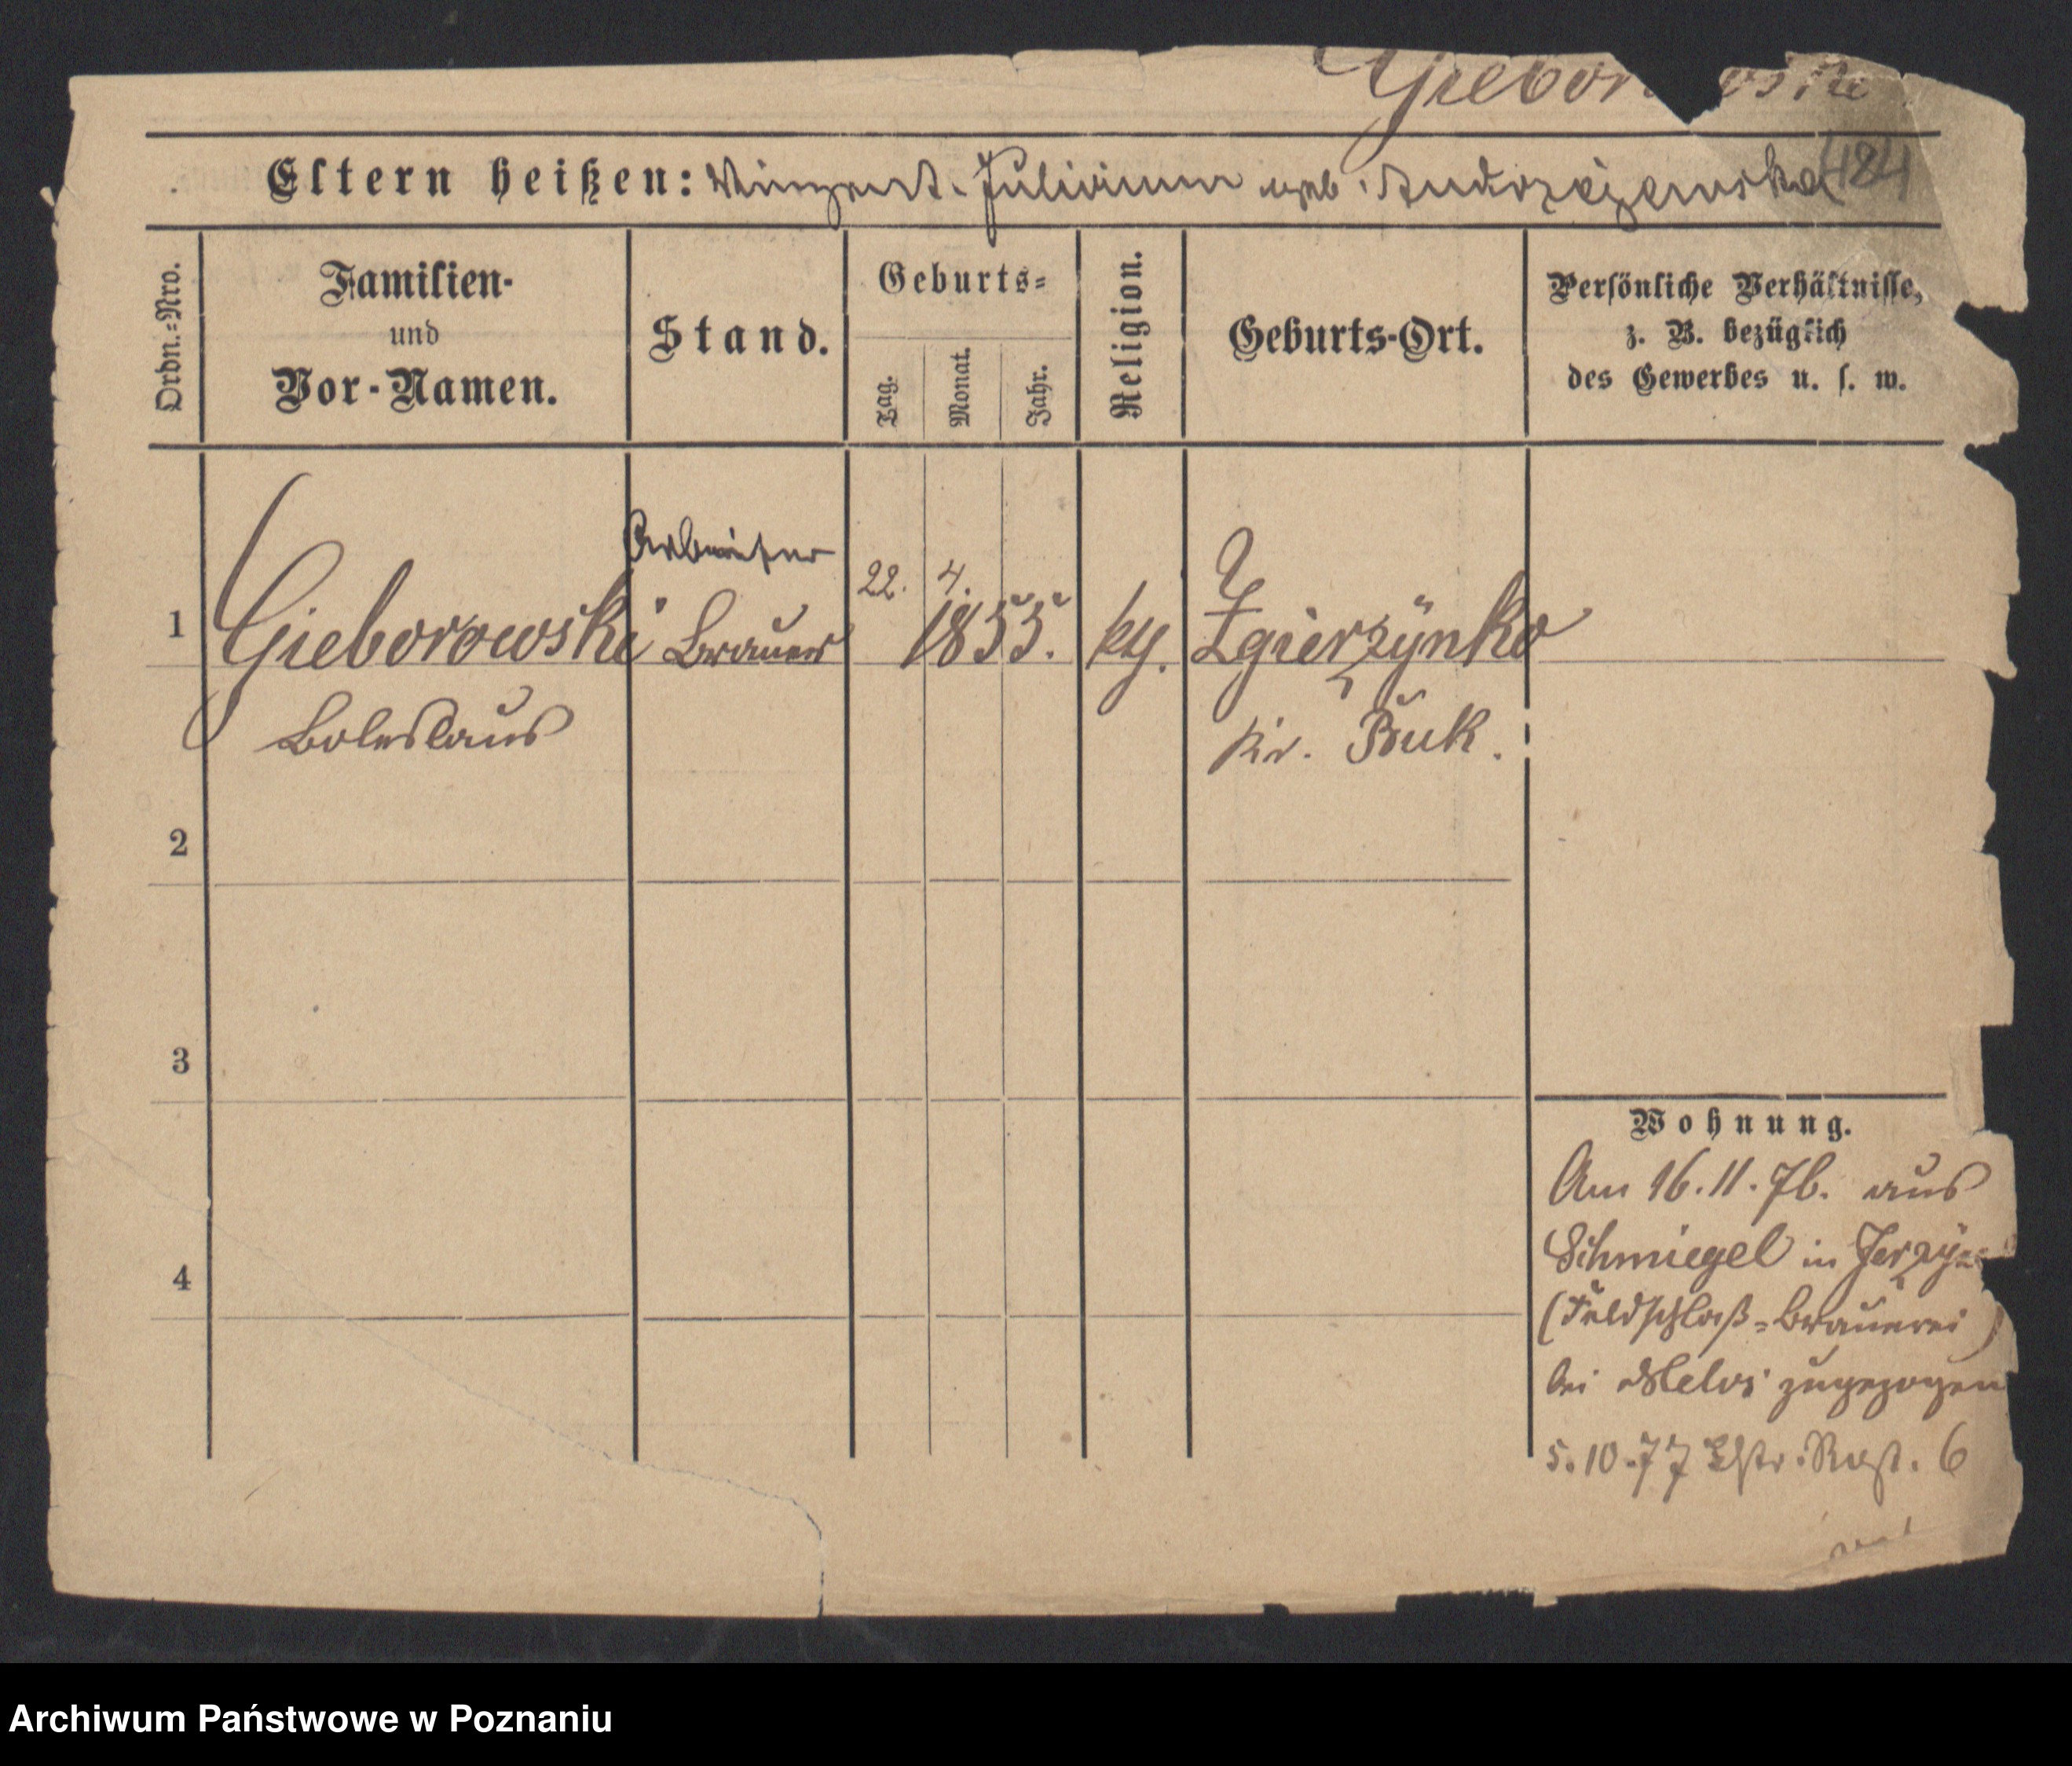 Gieborowski
484
Eltern heißen: Vinzent. Julianna geb. Andrzejewska
Ordn.-Nro.
Familien-
und
Vor-Namen.
Stand.
Geburts-
Tag.
Monat.
Jahr.
Religion.
Geburts-Ort.
Persönliche Verhältnisse,
z. B. bezüglich
des Gewerbes u. s. w.
Arbeiter
1 Gieborowski Brauer 22. 4. 1855. kg. Zgierzynko
Boleslaus
Kr. Buk.
2
3
4
Wohnung.
Am 16.11.76. aus
Schmiegel in
(Feldschloß-Brauerei)
bei zugezogen
5.10.77 6
Archiwum Państwowe w Poznaniu